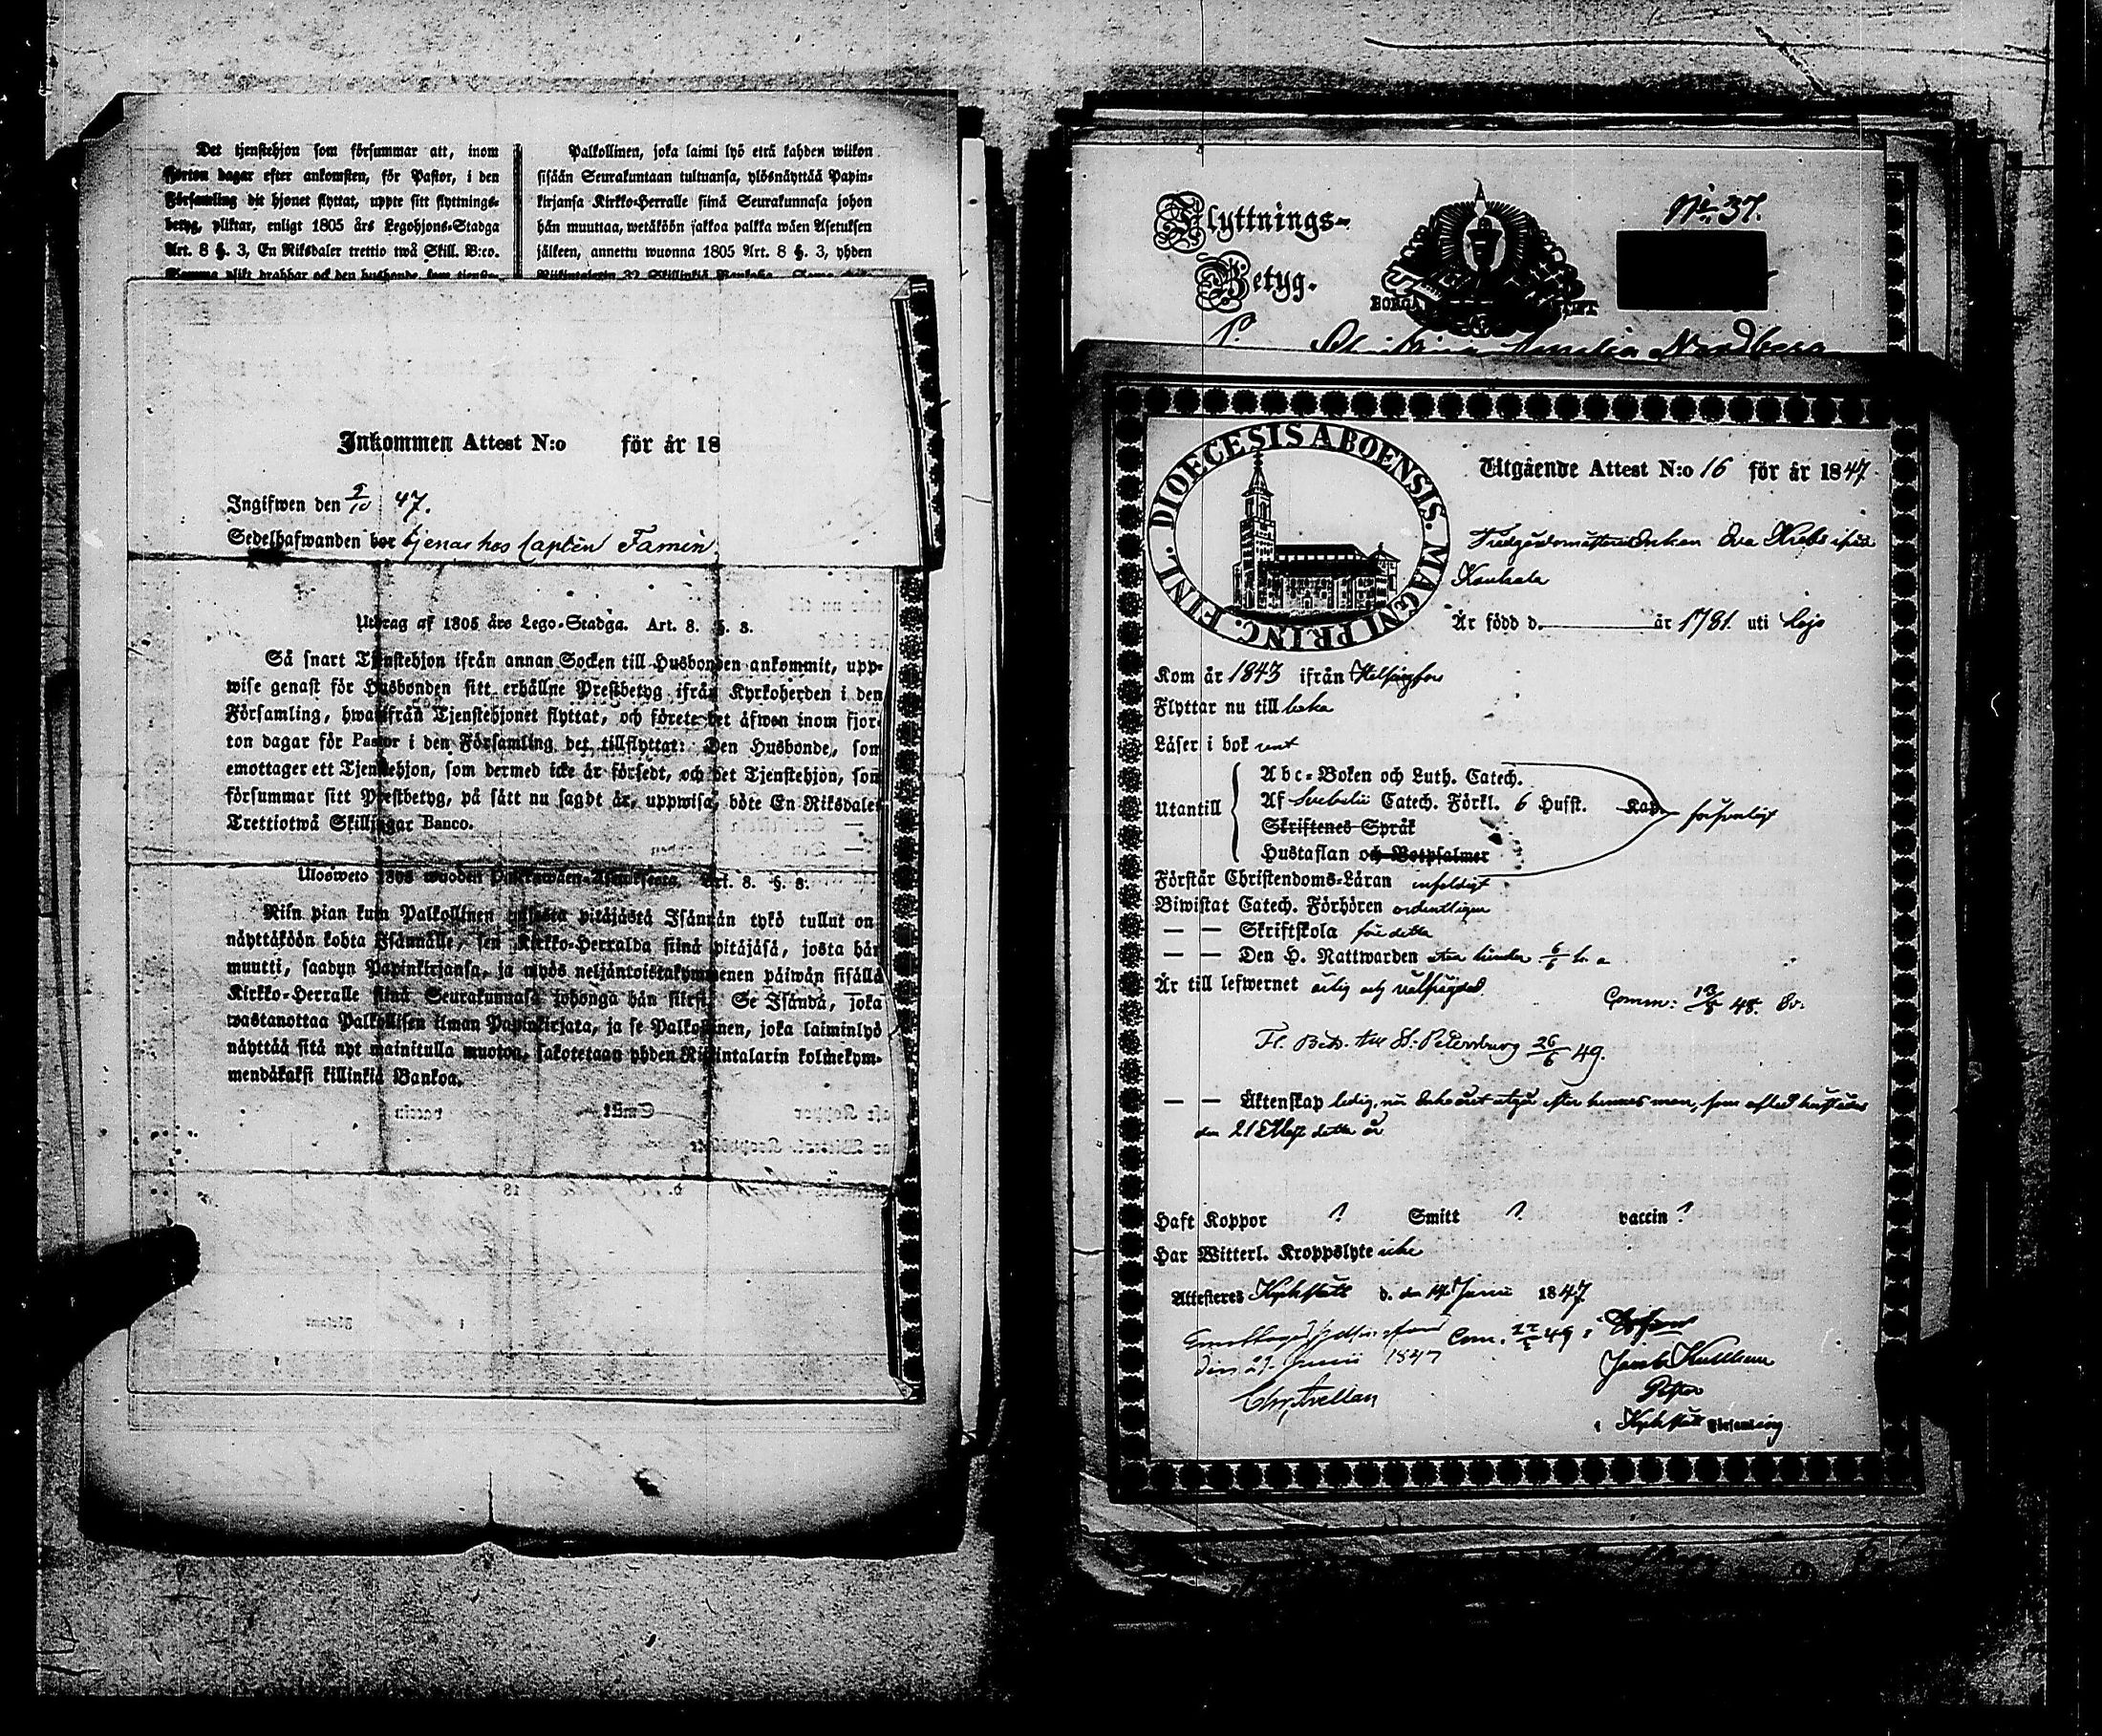 Det tjenstehjon som försummar att, inom
fjorton dagar efter ankomsten, för Pastor, i den
Församling dit hjonet flyttat, uppte sitt flyttnings-
betyg, pliktar, enligt 1805 års Legohjons-Stadga
Art. 8 §. 3, En Riksdaler trettio twå Skill. B:co.
Samma plikt drabbar ock den husbonde, som
Palkollinen, joka laimi lyö etrå kahden wiikon
sisään Seurakuntaan tultuansa, ylösnäyttää Papin-
kirjansa Kirkko-Herralle siinä Seurakunnasa johon
hän muuttaa, wetäköön sakkoa palkka wäen Asetuksen
jälkeen, annettu wuonna 1805 Art. 8 §. 3, yhden
Riikintalarin 32 Skillinkiä Bankoha. Sama
Inkommen Attest N:o för år 18
Ingifwen den 9/10 47.
Sedelhafwanden bor tjenar hos Captén Famén
Utdrag af 1805 års Lego-Stadga. Art. 8. §. 3.
Så snart Tjenstehjon ifrån annan Socken till Husbonden ankommit, upp-
wise genast för Husbonden sitt erhållne Prestbetyg ifrån Kyrkoherden i den
Församling, hwarifrån Tjenstehjonet flyttat, och förete det äfwen inom fjor-
ton dagar för Pastor i den Församling det tillflyttat: Den Husbonde, som
emottager ett Tjenstehjon, som dermed icke är försedt, och det Tjenstehjon, som
försummar sitt Prestbetyg, på sätt nu sagdt är, uppwisa, böte En Riksdaler
Trettiotwå Skillingar Banco.
Ulosweto 1805 wuoden Palkkawäen-Asetuksesta. Art. 8. §. 3.
Niin pian kuin Palkollinen toisesta pitäjästä Isännän tykö tullut on,
näyttäköön kohta Isännälle, sen Kirkko-Herralda siinä pitäjäsä, josta hän
muutti, saadun Papinkirjansa, ja myös neljäntoistakymmenen päiwän sisällä
Kirkko-Herralle siinä Seurakunnasa johonga hän siirsi. Se Isändä, joka
wastanottaa Palkollisen ilman Papinkirjata, ja se Palkollinen, joka laiminlyö
näyttää sitä nyt mainitulla muoton, sakotetaan yhden Riikintalarin kolmekym-
mendäkaksi killinkiä Bankoa.
Flyttnings-
Betyg.
BORGÅ
No 37.
P. Christina Amalia Nordberg
DIOECESIS ABOENSIS. MAGNI PRINC. FINL.
Utgående Attest N:o 16 för år 1847
Trädgårdsmästare Enkan Eva Krebs ifrån
Kankala
Är född d. år 1781 uti Lojo
Kom år 1843 ifrån Helsingfors
Flyttar nu till
Läser i bok rent
Utantill
Abc-Boken och Luth. Catech.
Af Svebelii Catech. Förkl. 6 Husst. Kap.
Skriftenes Språk
Hustaflan och Botpsalmer
försvarligt
Förstår Christendoms-Läran enfaldigt
Biwistat Catech. Förhören ordentligen
— — Skriftskola före detta
— — Den H. Nattwarden utan hinder 6/6
Är till lefwernet ärlig och välfrägdad.
Comm: 13/8 48.
Fl. Bet. till St. Petersburg 26/6 49.
— — Äktenskap ledig, nu enkoåret utgår efter hennes man, som afled
den 21 Maji detta år
Haft Koppor ? Smitt ? vaccin ?
Har Witterl. Kroppslyte icke
Attesteras Kyrkslätt d. den 14 Junii 1847
Com. 49
den 29 Junii 1847
Chr. Avellan
Jacob
Pastor
i Kyrkslätt Församling